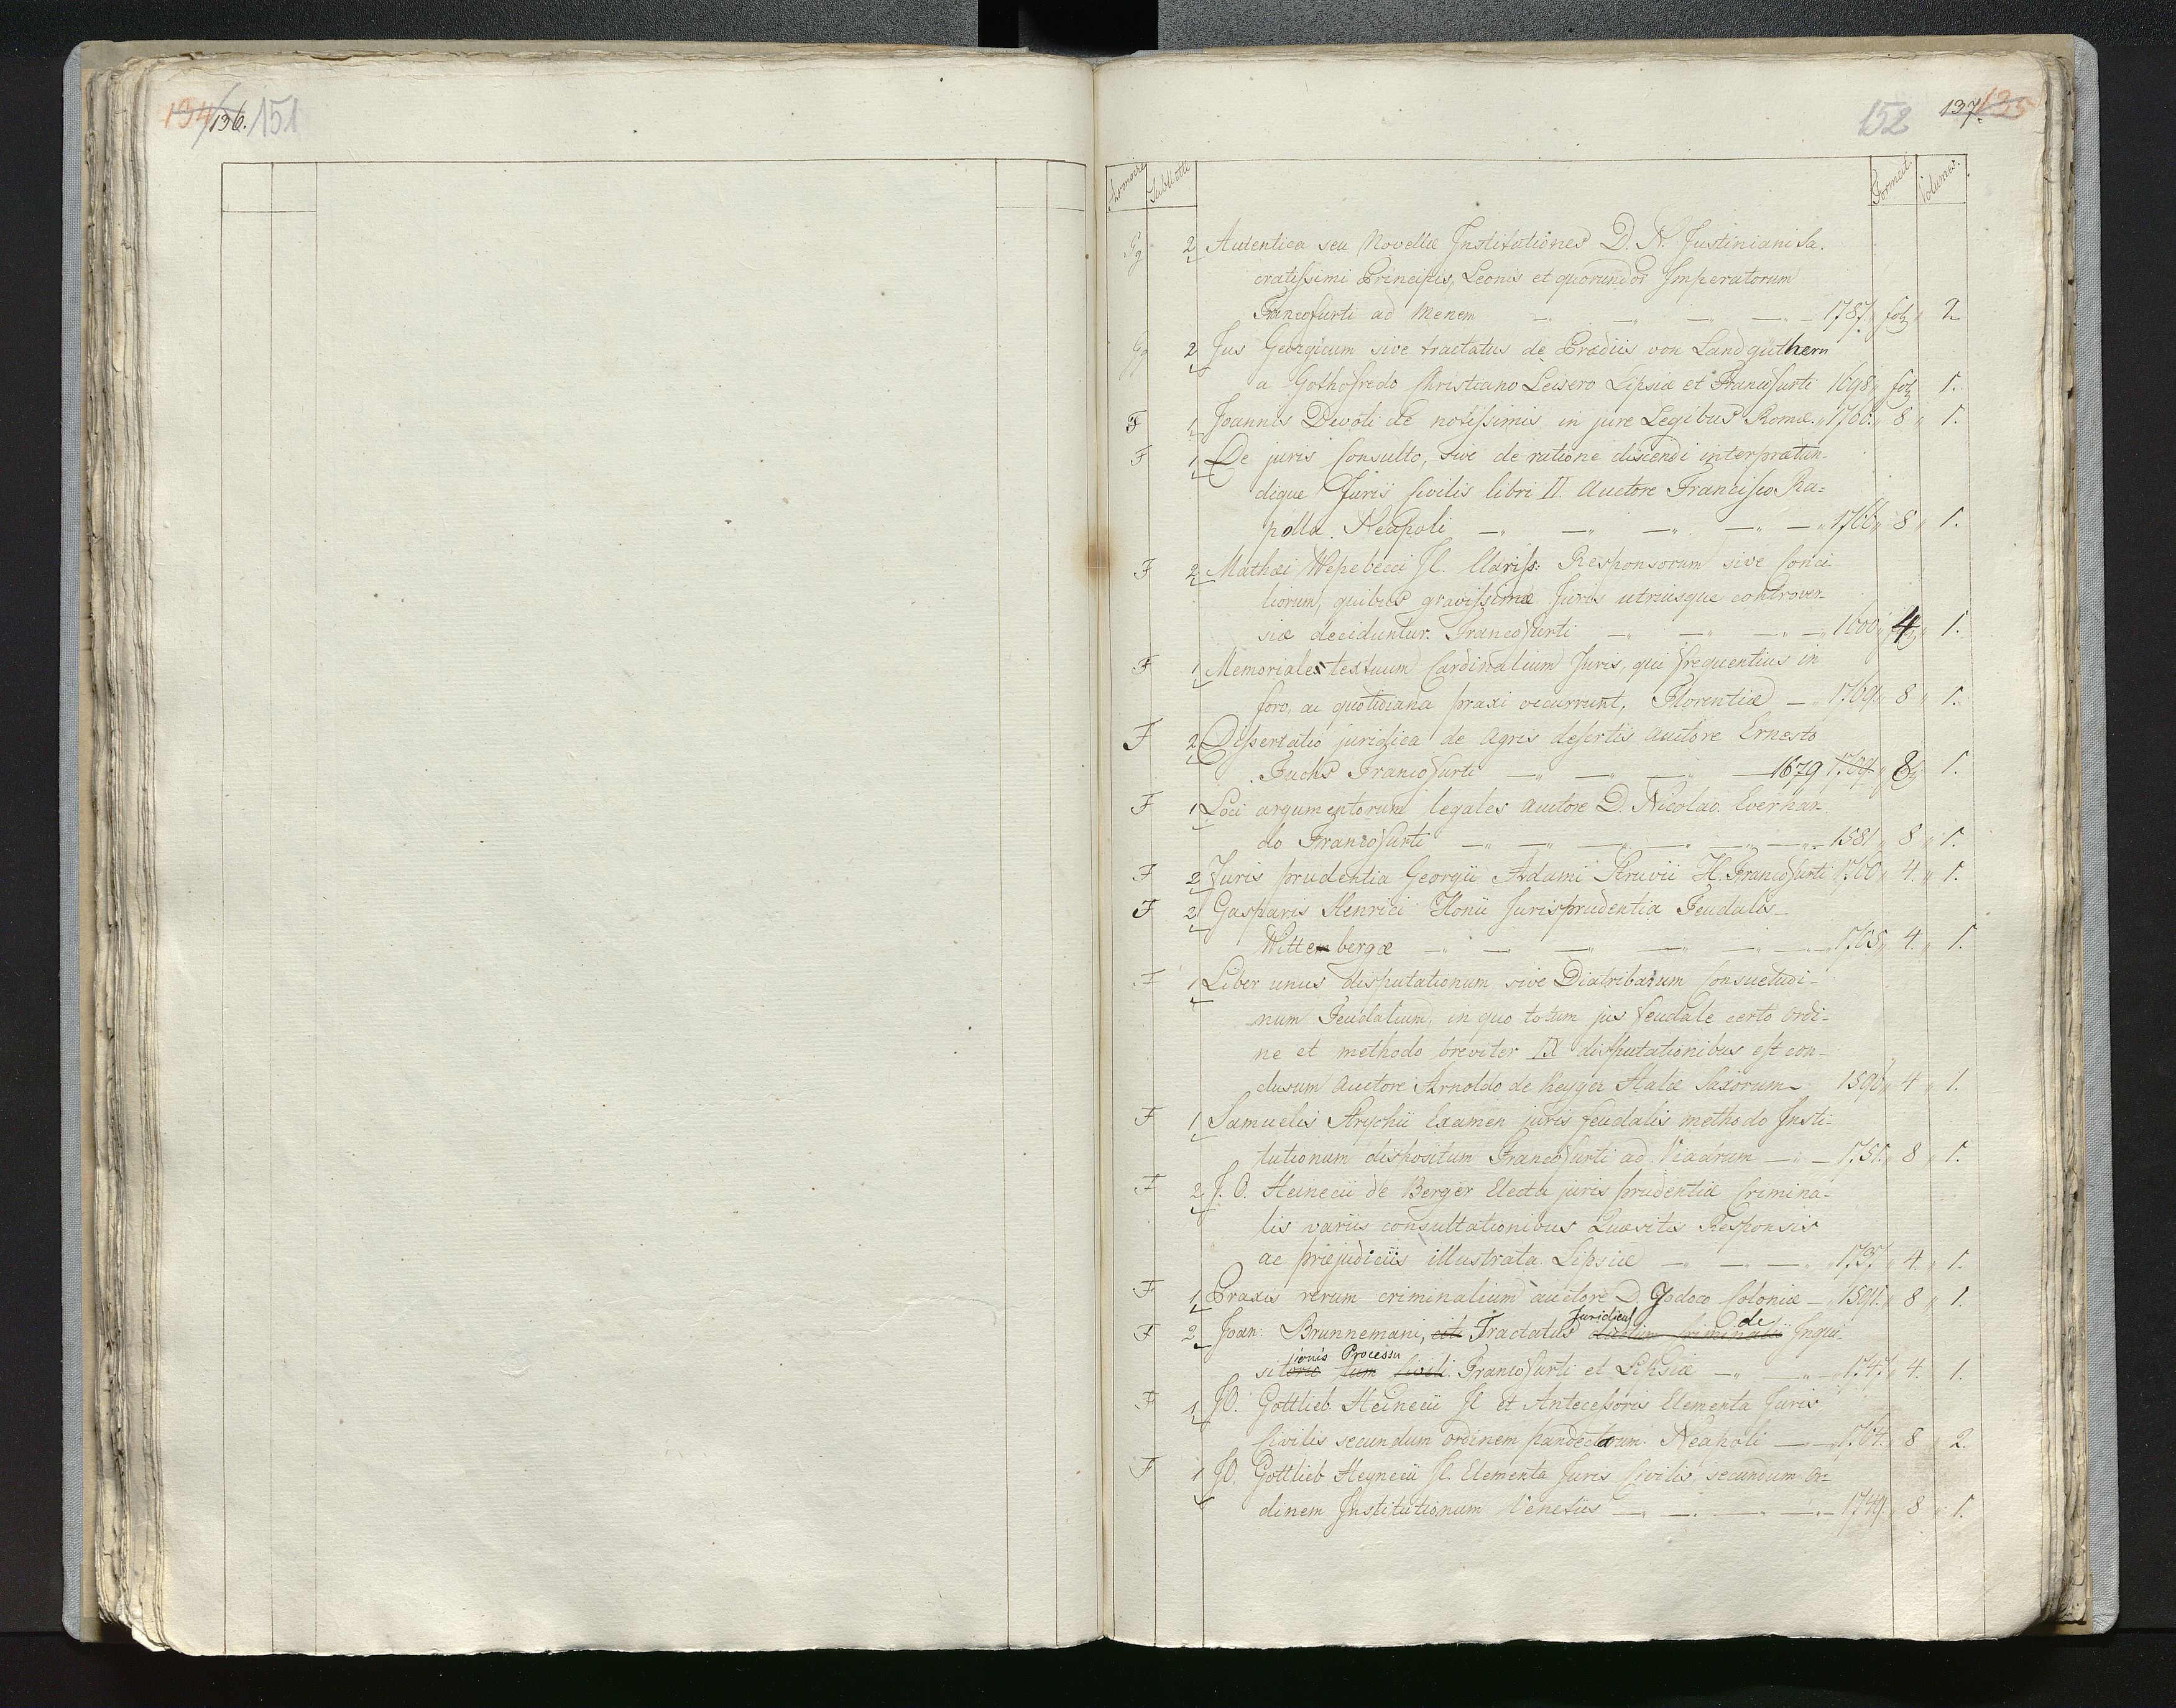 134 / 136. / 151
152 137. 135
Armoire Tablette Format. Volumes.
Gg 2 Autentica seu Novellæ Institutiones D. N. Justiniani Sa-
cratissimi Principis, Leonis et quorundor Imperatorum
Francofurti ad Menem — — — — 1787 „ fol „ 2
Gg 2 Jus Georgicum sive tractatus de Prædiis von Landgüthern
a Gothofredo Christiano Leisero Lipsiæ et Francofurti 1698 „ fol 1.
F 1 Joannis Devoti de notissimis in jure Legibus Romæ. „ 1766. „ 8 „ 1.
F 1 De juris Consulto, sive de ratione discendi interprætan-
dique Juris Civilis libri II. Auctore Francisco Ra-
polla. Neapoli — — — — — 1766 „ 8 „ 1.
F 2 Mathæi Wesebecci Jl. Clariss: Responsorum sive Conci
liorum, quibus gravissimæ Juris utriusque controver-
siæ deciduntur. Francofurti — — — — 1600 „ 4 „ 1.
F 1 Memoriales textuum Cardinalium Juris, qui frequentius in
foro, ac quotidiana praxi occurrunt, Florentiæ — 1769. „ 8 „ 1.
F 2 Dissertatio juridica de Agris desertis auctore Ernesto
Fuchs Francofurti — — — — 1679 1709 „ 8 „ 1.
F 1 Loci argumentorum legales auctore D. Nicolao Everhar-
do Francofurti — — — — — — 1581 „ 8 „ 1.
F 2 Juris prudentia Georgii Adami Struvii Jl. Francofurti 1760 „ 4. „ 1.
F 2 Gasparis Henrici Hornii Jurisprudentia Feudalis
Wittenbergæ — — — — — — 1705 „ 4. „ 1.
F 1 Liber unus disputationum sive Diatribarum Consuetudi-
num Feudalium, in quo totum jus feudale certo ordi-
ne et methodo breviter IX disputationibus est con-
clusum Auctore Arnoldo de Reyger Halæ Saxorum 1596 „ 4 „ 1.
F 1 Samuelis Strychii Examen juris feudalis methodo Insti-
tutionum dispositum Francofurti ad Viadrum — — 1751. „ 8 „ 1.
F 2 J. O. Heinecii de Berger Electa juris prudentiæ Crimina-
lis variis consultationibus Quæsitis Responsis
ac præjudiciis illustrata Lipsiæ — — — 1737. „ 4. „ 1.
F 1 Praxis rerum criminalium auctore D. Jodoco Coloniæ — 1591. „ 8 „ 1.
F 2 Joan: Brunnemani, Tractatus Juridicus de Inqui-
sitionis Processu Civili Francofurti et Lipsiæ — — 1747. „ 4. 1.
F 1 JO. Gottlieb Heinecii Jl et Antecessoris Elementa Juris
Civilis secundum ordinem pandectarum. Neapoli — 1764. „ 8 „ 2.
F 1 JO. Gottlieb Heynecii Jl. Elementa Juris Civilis, secundum Or-
dinem Institutionum Venetiis — — — — 1749. „ 8 „ 1.